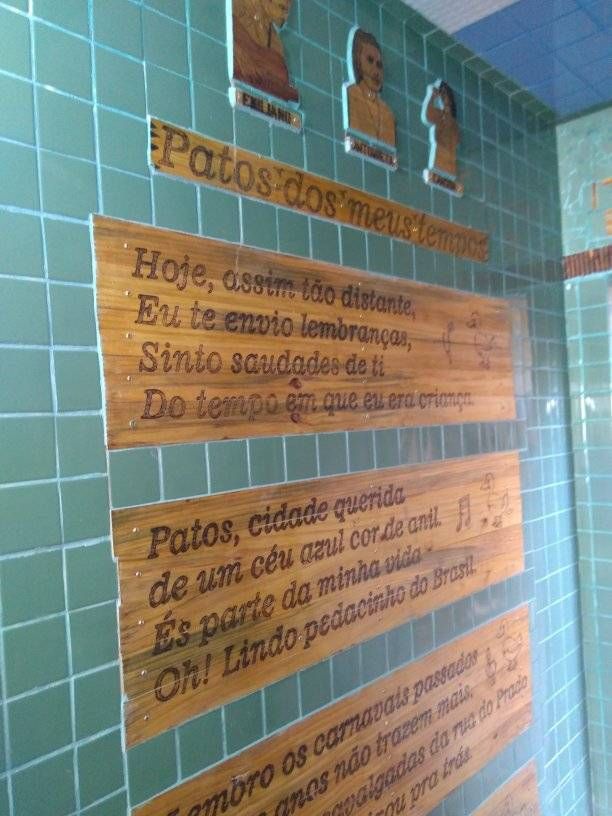 EMILIANO
ANTONIETA
Patos dos meus tempos
Hoje, assim tão distante,
Eu te envio lembranças,
Sinto saudades de ti
Do tempo em que eu era criança.
Patos, cidade querida
de um céu azul cor de anil.
És parte da minha vida
Oh! Lindo pedacinho do Brasil.
Lembro os carnavais passados
anos não trazem mais.
cavalgadas da rua do Prado
pra trás.